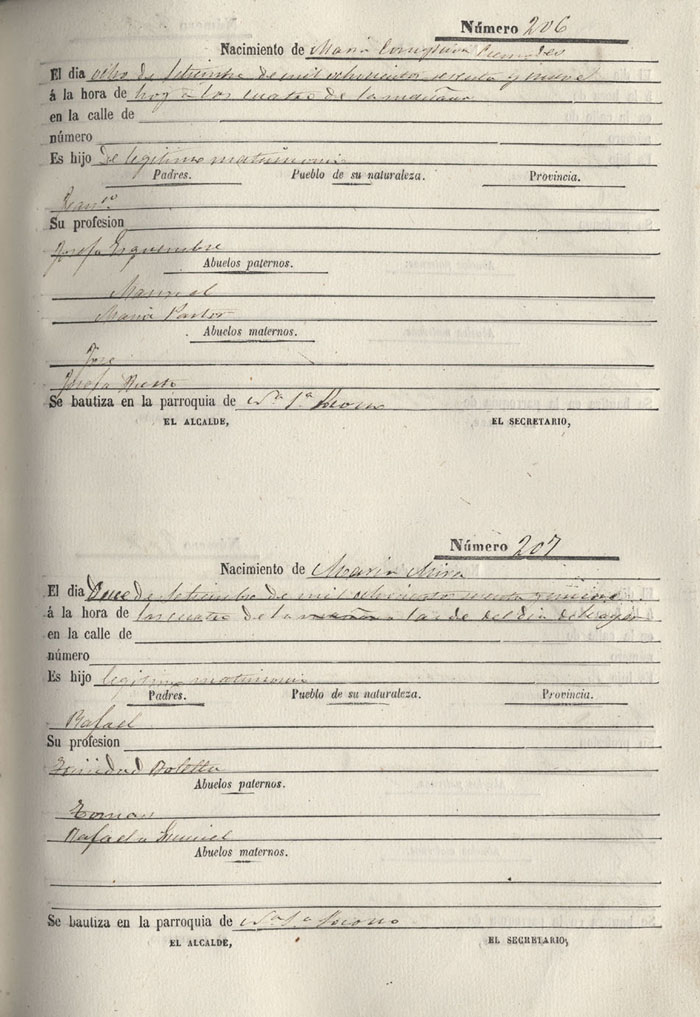 Número 206
Nacimiento de Maria
El dia ocho de setiembre de mil ochocientos sesenta y nueve
á la hora de hoy a las cuatro de la mañana
en la calle de
número
Es hijo de legitimo matrimonio
Padres. Pueblo de su naturaleza. Provincia.
Ramº
Su profesion
Josefa Esquembre
Abuelos paternos.
Manuel
Maria Pastor
Abuelos maternos.
Jose
Josefa
Se bautiza en la parroquia de
EL ALCALDE, EL SECRETARIO,
Número 207
Nacimiento de Maria Mira
El dia Doce de setiembre de mil ochocientos sesenta y nueve
á la hora de las cuatro de la mañana tarde del dia de
en la calle de
número
Es hijo legitimo matrimonio
Padres. Pueblo de su naturaleza. Provincia.
Rafael
Su profesion
Trinidad
Abuelos paternos.
Roman
Rafaela
Abuelos maternos.
Se bautiza en la parroquia de
EL ALCALDE, EL SECRETARIO,